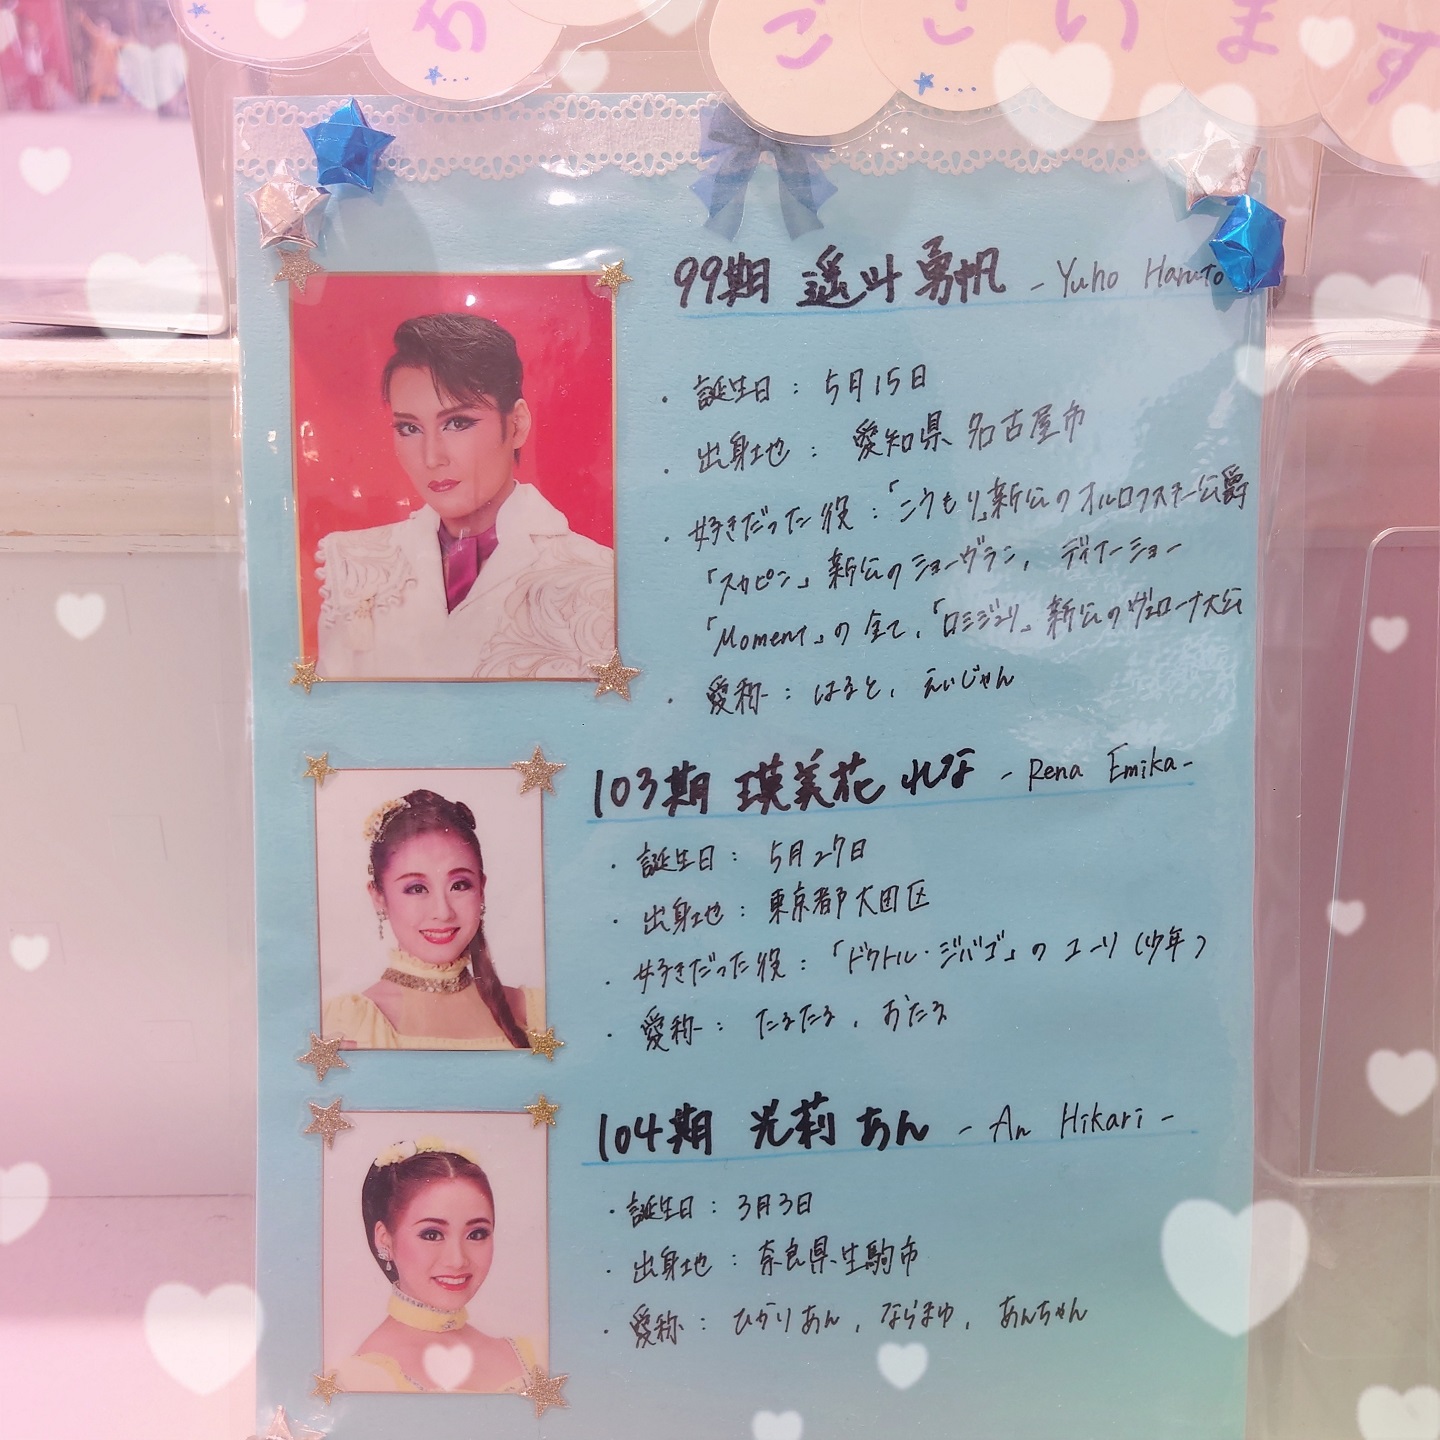 わ ございます
99期 遥斗 勇帆 - Yuho Haruto
・誕生日 : 5月15日
・出身地 : 愛知県 名古屋市
・好きだった役 : 「こうもり」新公のオルロフスキー公爵
「スカピン」新公のショーヴラン, ディナーショー
「Moment」の全て, 「ロミジュリ」新公のヴェローナ大公
・愛称 : はると, えいじゃん
103期 瑛美花 れな - Rena Emika -
・誕生日 : 5月27日
・出身地 : 東京都大田区
・好きだった役 : 「ドクトル・ジバゴ」の ユーリ (少年)
・愛称 : たるたる, おたる
104期 光莉 あん - An Hikari -
・誕生日 : 3月3日
・出身地 : 奈良県生駒市
・愛称 : ひかりあん, ならまゆ, あんちゃん